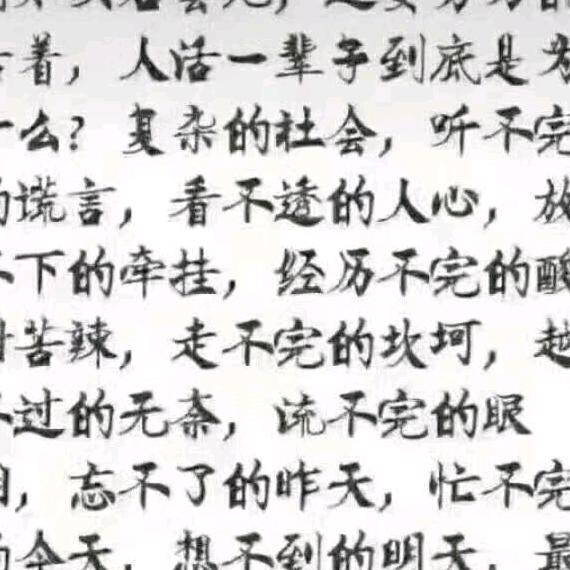 着，人活一辈子到底是为
什么？复杂的社会，听不完
的谎言，看不透的人心，放
不下的牵挂，经历不完的酸
甜苦辣，走不完的坎坷，越
不过的无奈，流不完的眼
泪，忘不了的昨天，忙不完
的今天，想不到的明天，最